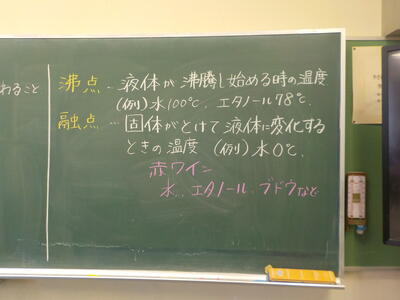 わること
沸点…液体が沸騰し始める時の温度
(例)水100℃、エタノール78℃.
融点…固体がとけて液体に変化する
ときの温度 (例)水0℃.
赤ワイン
水、エタノール、ブドウなど